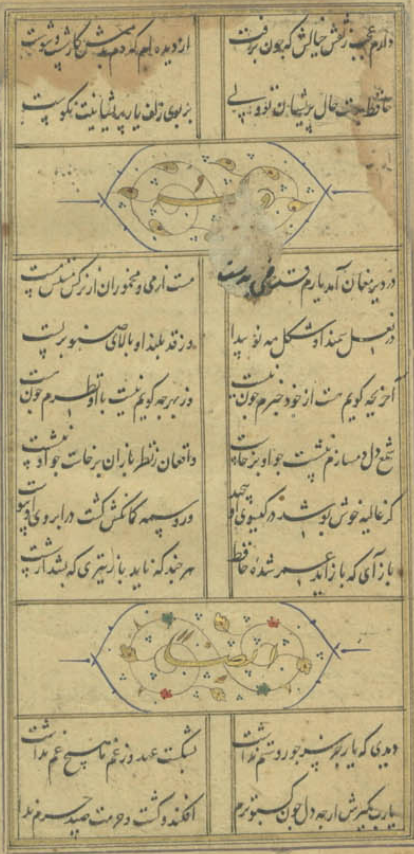 دارم عجب ز نقش خیالش که چون نرفت
از دیده ام که دم بدمش کار شست و شوست
حافظ بدست حال پریشان تو ولی
بر بوی زلف یار پریشانیت نکوست
در دیر مغان آمد یارم قدحی در دست
مست از می و میخواران از نرگس مستش مست
در نعل سمند او شکل مه نو پیدا
وز قد بلند او بالای صنوبر پست
آخر بچه گویم هست از خود خبرم چون نیست
وز بهر چه گویم نیست با او نظرم چون هست
شمع دل دمسازم بنشست چو او برخاست
وافغان ز نظر بازان برخاست چو او بنشست
گر غالیه خوش بو شد در گیسوی او پیچید
ور وسمه کمانکش گشت در ابروی او پیوست
باز آی که باز آید عمر شده حافظ
هرچند که ناید باز تیری که بشد از شست
ایضا
دیدی که یار جز سر جور و ستم نداشت
بشکست عهد وز غم ما هیچ غم نداشت
یارب مگیرش ارچه دل چون کبوترم
افکند و کشت و حرمت صید حرم نداشت